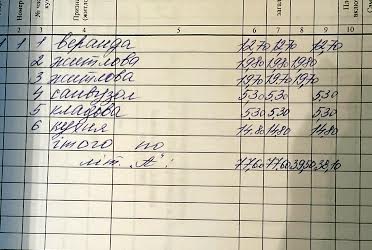 загал
2 3 4 5 6 8 9 10
1 1 1 веранда 12.70 12.70 12.70
2 житлова 19.80 19.80 19.80
3 житлова 19.70 19.70 19.70
4 санвузол 5.30 5.30 5.30
5 кладова 5.30 5.30 5.30
6 кухня 14.80 14.80 14.80
Ітого по
літ. "А": 77,60 77,60 39,50 38,10